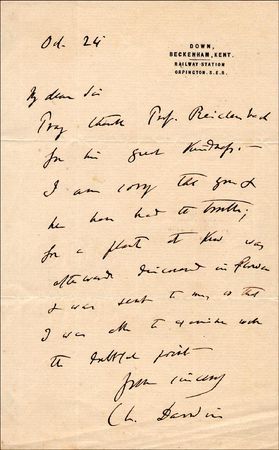 Oct. 24
DOWN,
BECKENHAM, KENT.
RAILWAY STATION
ORPINGTON. S.E.R.
My dear Sir
Pray thank Prof. Reichenbach
for his great kindness.—
I am sorry that you &
he have had the trouble;
for a plant at Kew was
afterwards discovered in flower
& was sent to me, so that
I was able to examine with
the doubtful point
yours sincerely
Ch. Darwin